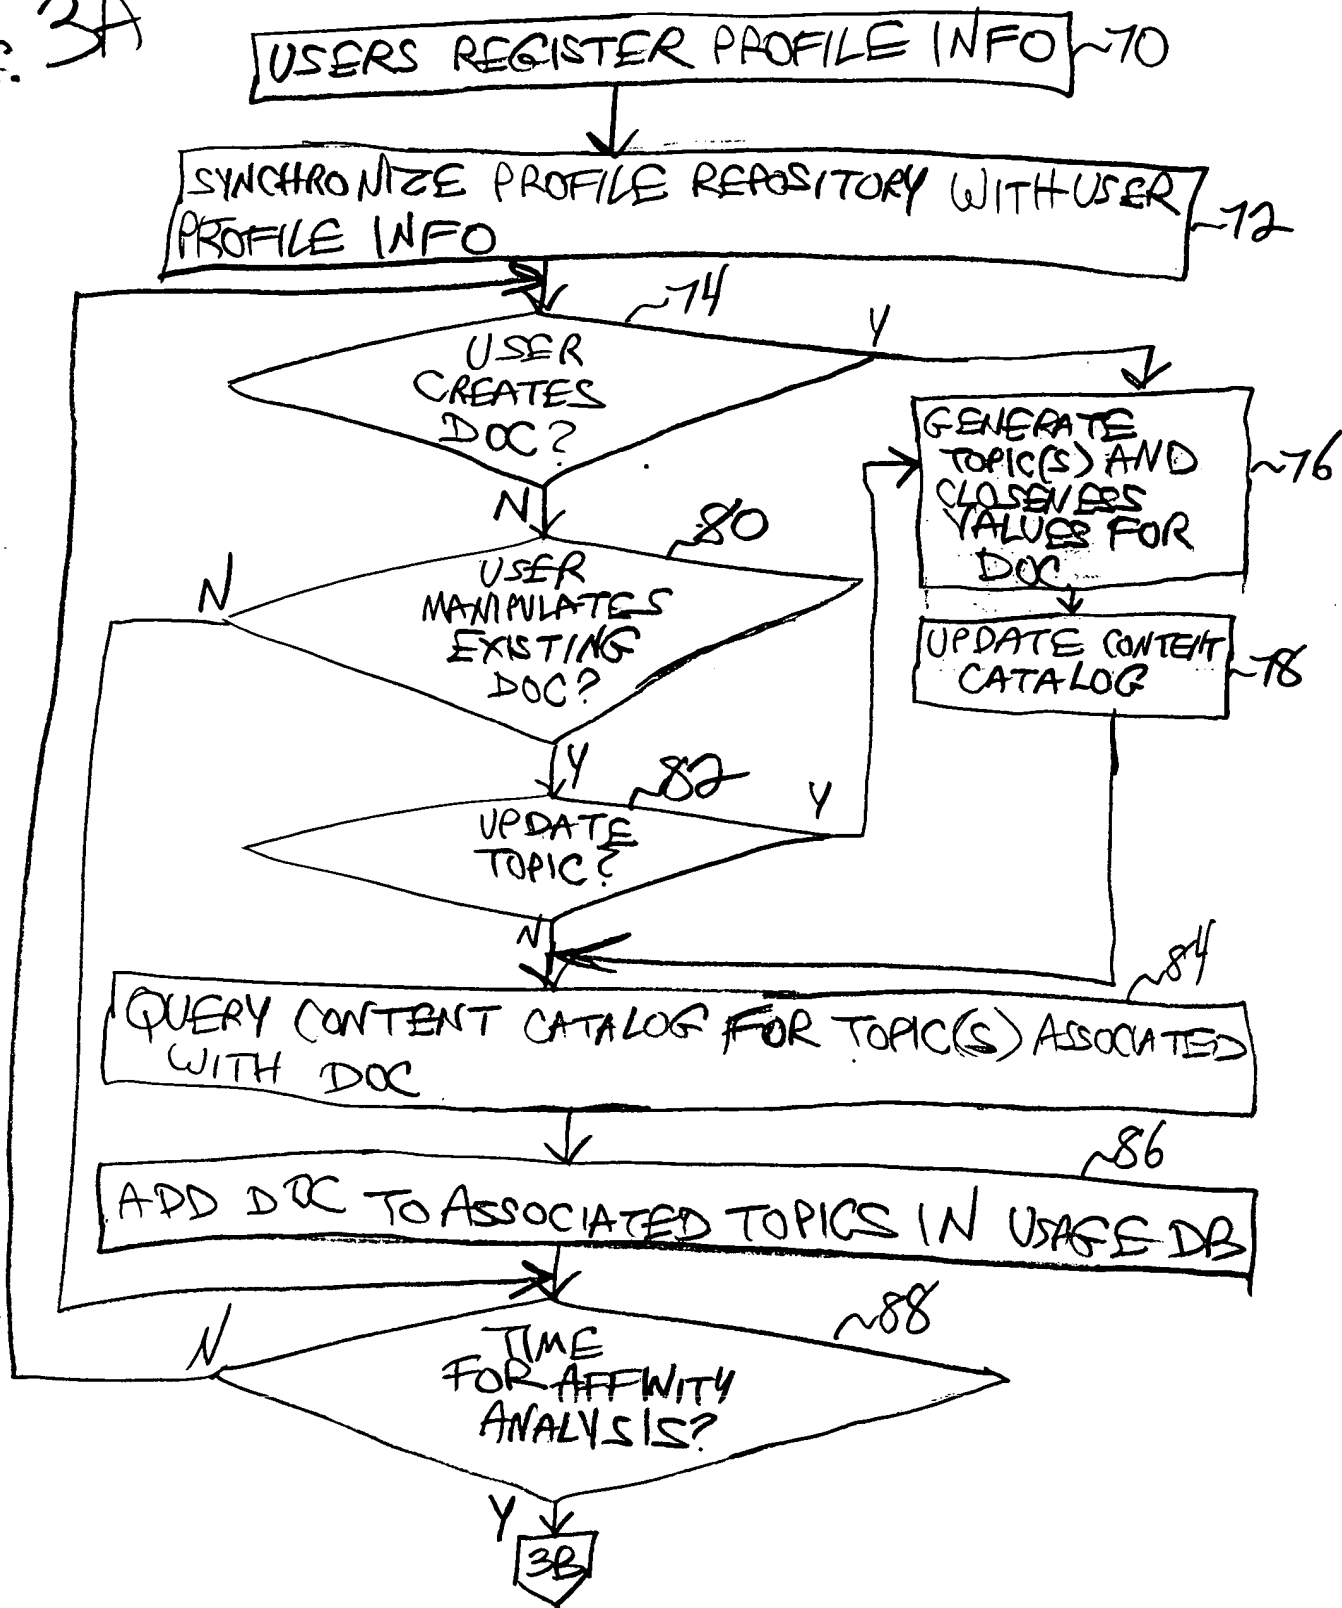 3A
USERS REGISTER PROFILE INFO
70
SYNCHRONIZE PROFILE REPOSITORY WITH USER
PROFILE INFO
72
74
USER
CREATES
DOC?
Y
N
GENERATE
TOPIC(S) AND
CLOSENESS
VALUES FOR
DOC
76
UPDATE CONTENT
CATALOG
78
80
USER
MANIPULATES
EXISTING
DOC?
N
Y
82
UPDATE
TOPIC?
Y
N
84
QUERY CONTENT CATALOG FOR TOPIC(S) ASSOCIATED
WITH DOC
86
ADD DOC TO ASSOCIATED TOPICS IN USAGE DB
88
TIME
FOR AFFINITY
ANALYSIS?
N
Y
3B